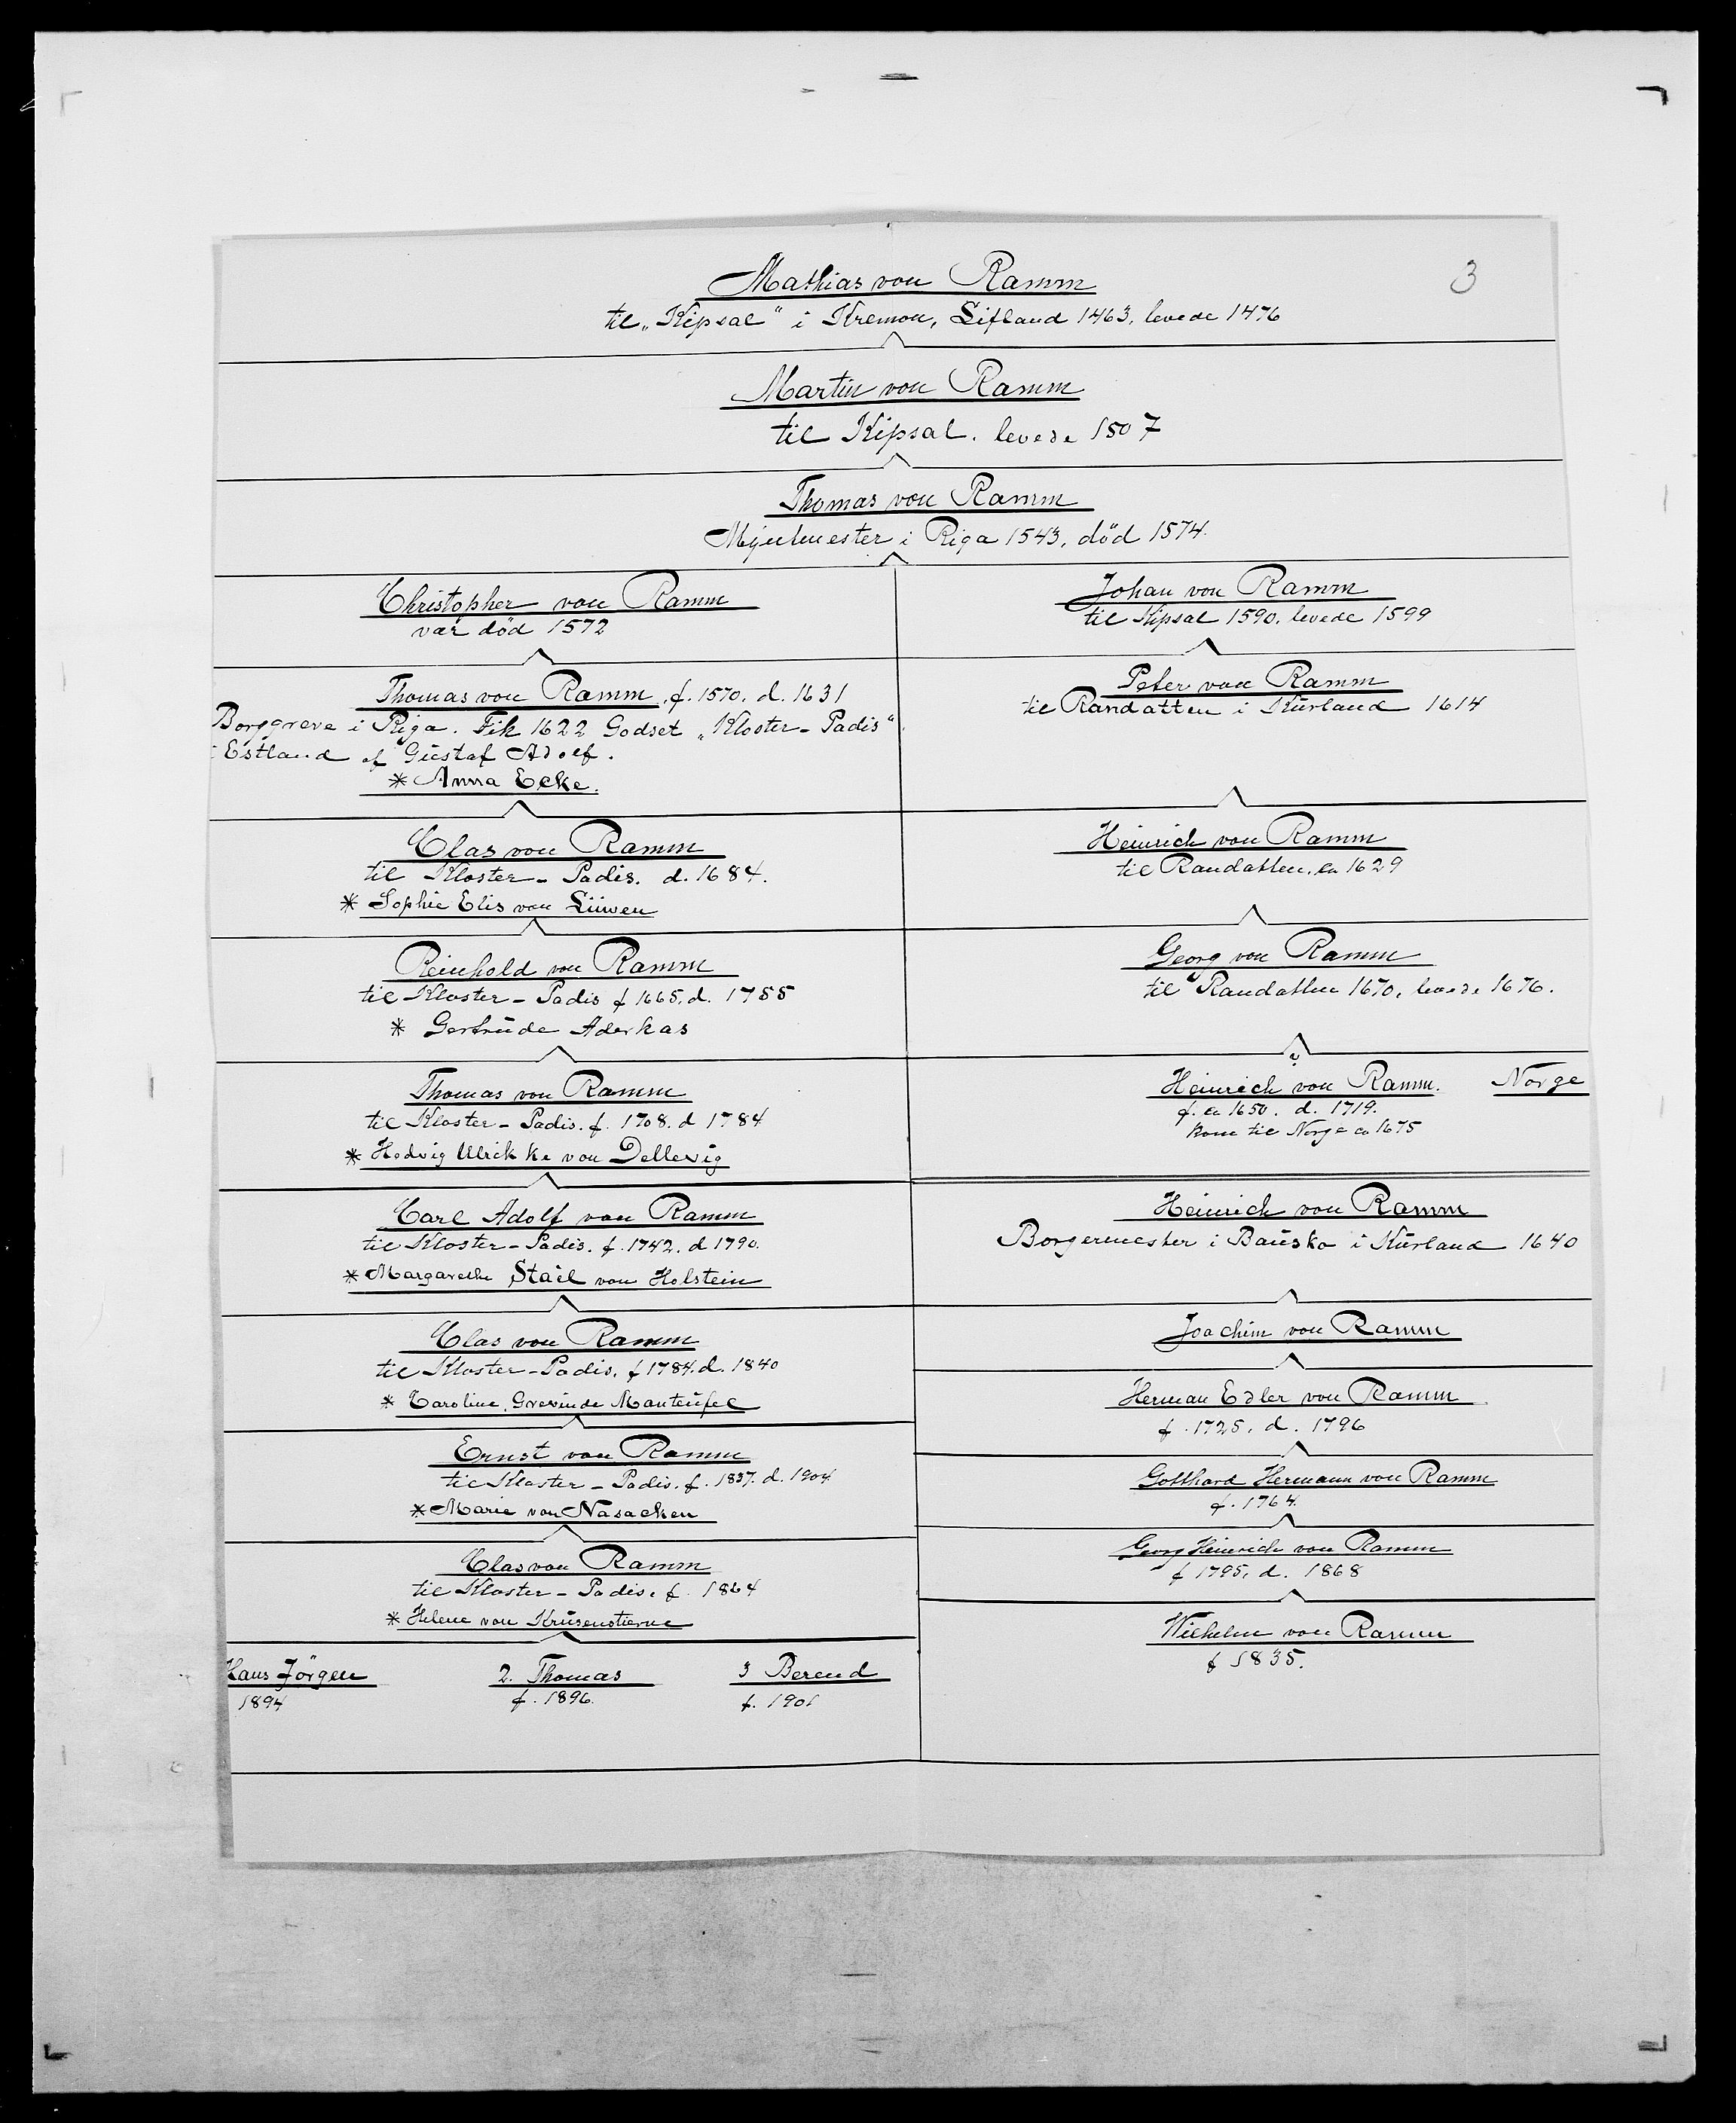 3
Mathias von Ramm
til „Kipsal" i Kremon, Lifland 1463, levede 1476
Martin von Ramm
til Kipsal. levede 1507
Thomas von Ramm
Myntmester i Riga 1543, död 1574.
Christopher von Ramm
var död 1572
Thomas von Ramm, f. 1570. d. 1631
Borggreve i Riga. Fik 1622 Godset „Kloster-Padis"
i Estland af Gustaf Adolf.
* Anna Ecke.
Clas von Ramm
til Kloster-Padis. d. 1684.
* Sophie Elis von Lüwen
Reinhold von Ramm
til Kloster-Padis f 1665, d. 1755
* Gertrude Aderkas
Thomas von Ramm
til Kloster-Padis. f. 1708. d 1784
* Hedvig Ulrikke von Dellevig
Carl Adolf von Ramm
til Kloster-Padis. f. 1742. d 1790.
* Margarethe Staël von Holstein
Clas von Ramm
til Kloster-Padis, f 1784. d. 1840
* Caroline, Grevinde Manteufel
Ernst von Ramm
til Kloster-Padis. f. 1837. d. 1904
* Marie von Nasacken
Clas von Ramm
til Kloster-Padis. f. 1864
* Helene von Krusenstierne
Hans Jörgen
1894
2. Thomas
f. 1896.
3 Berend
f. 1901
Johan von Ramm
til Kipsal 1590. levede 1599
Peter von Ramm
til Randatten i Kurland 1614
Heinrich von Ramm
til Randatten, ca 1629
Georg von Ramm
til Randatten 1670, levede 1676.
?
Heinrich von Ramm. Norge
f. ca 1650. d. 1719.
kom til Norge ca 1675
Heinrich von Ramm
Borgermester i Bauska i Kurland 1640
Joachim von Ramm
Herman Edler von Ramm
f. 1725, d. 1796
Gotthard Hermann von Ramm
f. 1764.
Georg Heinrich von Ramm
f 1795, d. 1868
Wilhelm von Ramm
f 1835.